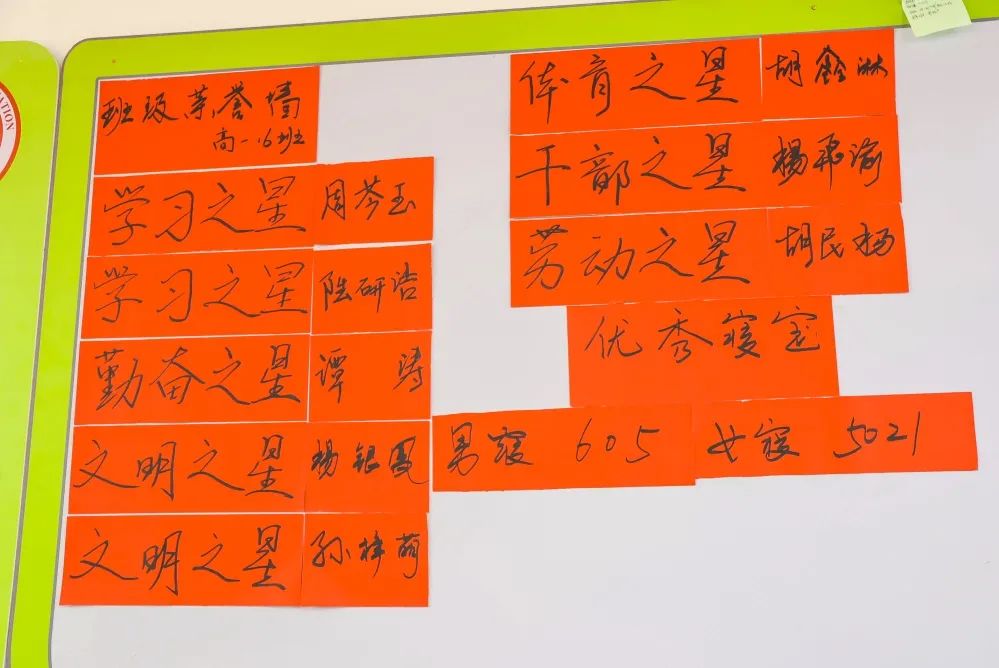 班级荣誉墙
高一.16班
学习之星 周芩玉
学习之星 陆研洁
勤奋之星 谭涛
文明之星 杨银凤
文明之星 孙梓萌
体育之星 胡鑫淋
干部之星 杨飛渝
劳动之星 胡民杨
优秀寝室
男寝 605
女寝 5021
ATION